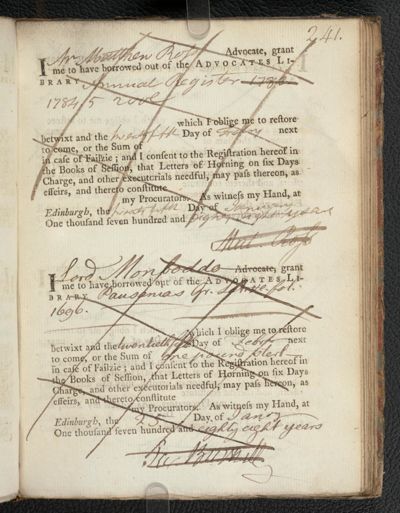 241.
I Mr Matthew Ross Advocate, grant
me to have borrowed out of the ADVOCATES LI-
BRARY Annual Register 1783
1784/5 2 vols
which I oblige me to restore
betwixt and the Day of next
to come, or the Sum of
in case of Failzie; and I consent to the Registration hereof in
the Books of Session, that Letters of Horning on six Days
Charge, and other executorials needful, may pass thereon, as
effeirs, and thereto constitute
my Procurators. As witness my Hand, at
Edinburgh, the Day of January
One thousand seven hundred and Eighty eight years
Mat. Ross
I Lord Monboddo Advocate, grant
me to have borrowed out of the ADVOCATES LI-
BRARY Pausanias Gr. fol.
1696.
which I oblige me to restore
betwixt and the twentieth Day of next
to come, or the Sum of one pound Sterl.
in case of Failzie; and I consent to the Registration hereof in
the Books of Session, that Letters of Horning on six Days
Charge, and other executorials needful, may pass hereon, as
effeirs, and thereto constitute
my Procurators. As witness my Hand, at
Edinburgh, the 25 Day of Janry
One thousand seven hundred and eighty eight years
Ja. Burnett